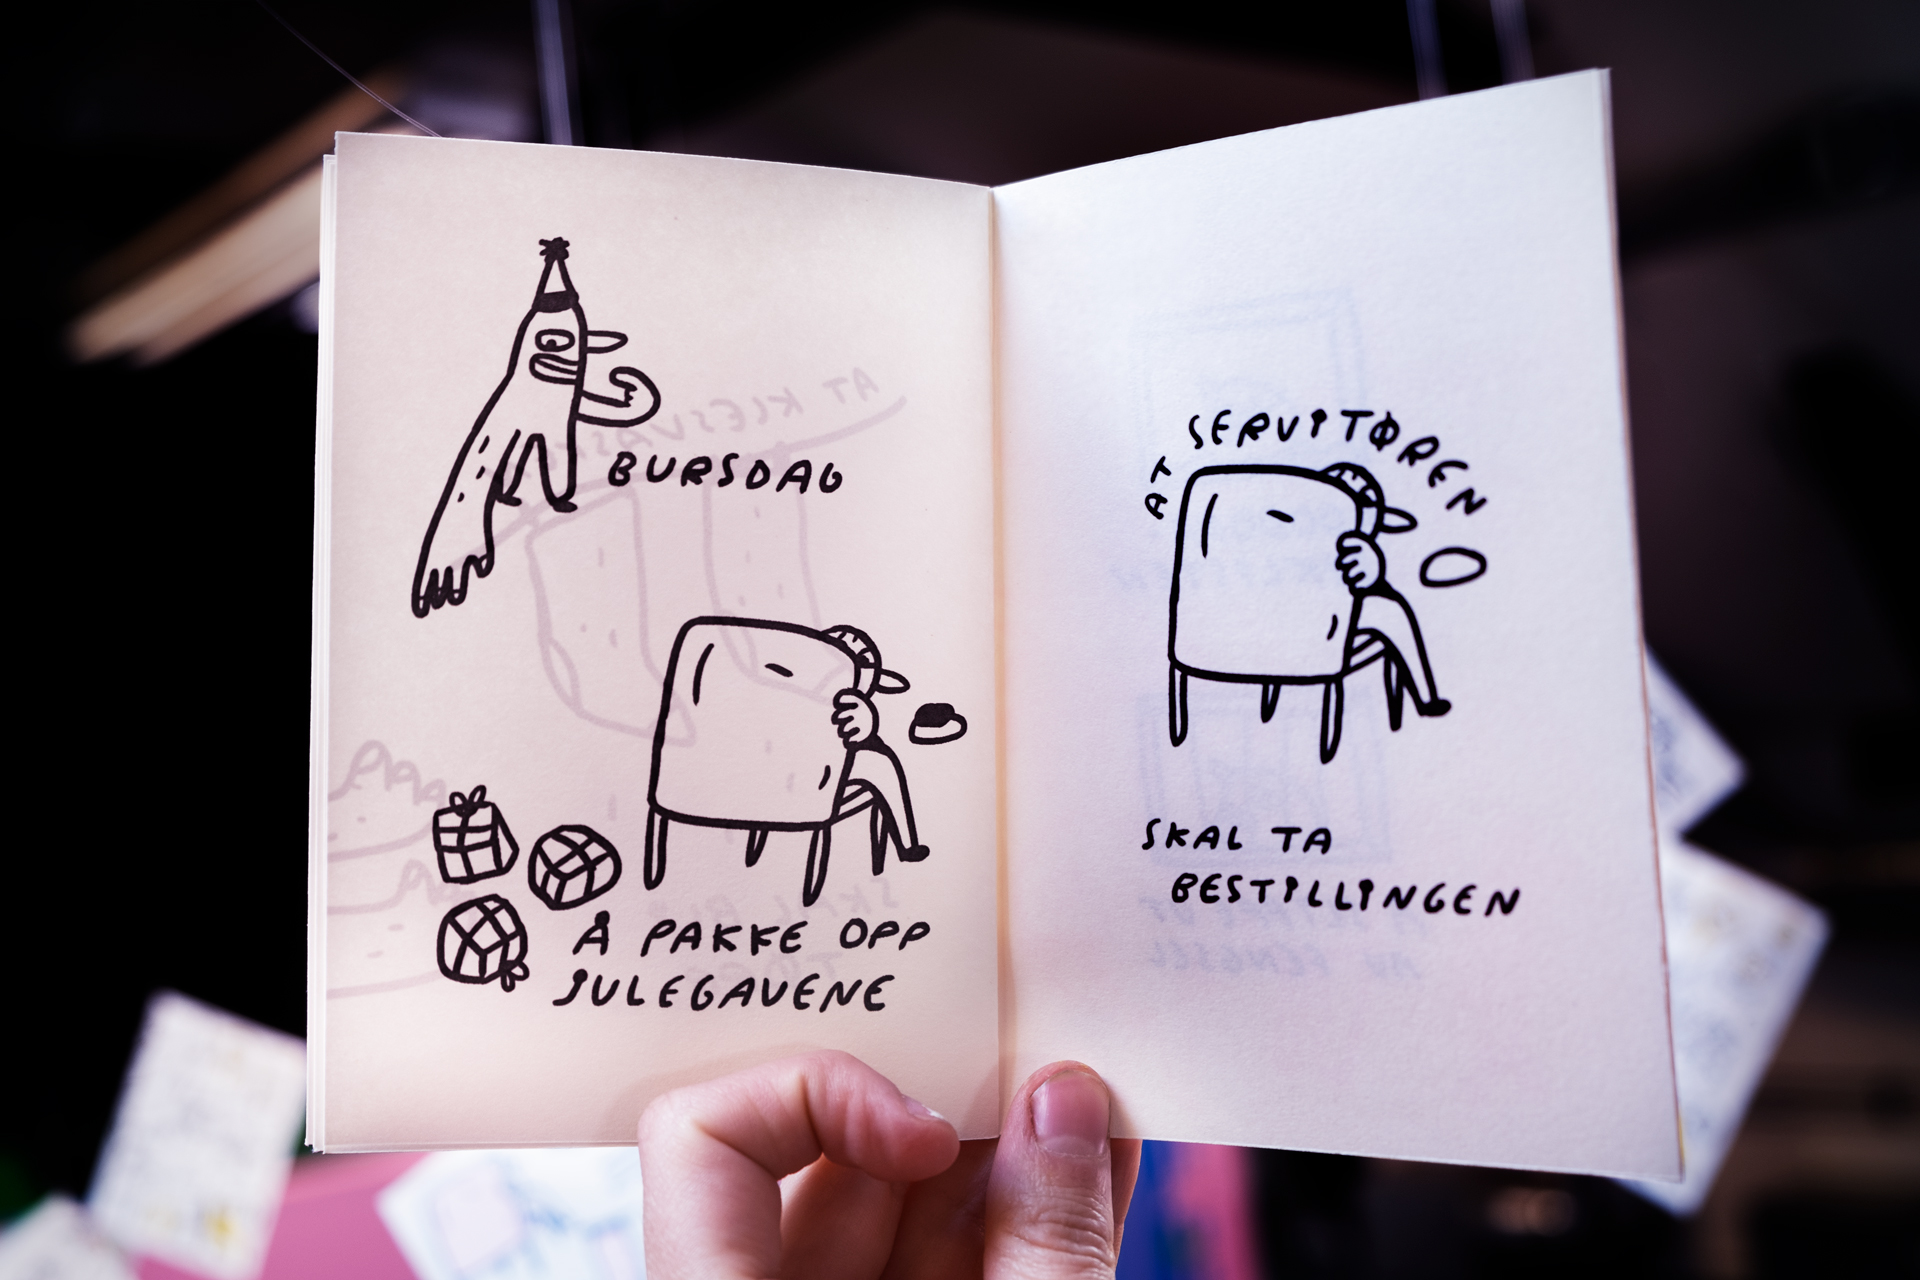 BURSDAG
Å PAKKE OPP
JULEGAVENE
AT SERVITØREN
SKAL TA
BESTILLINGEN